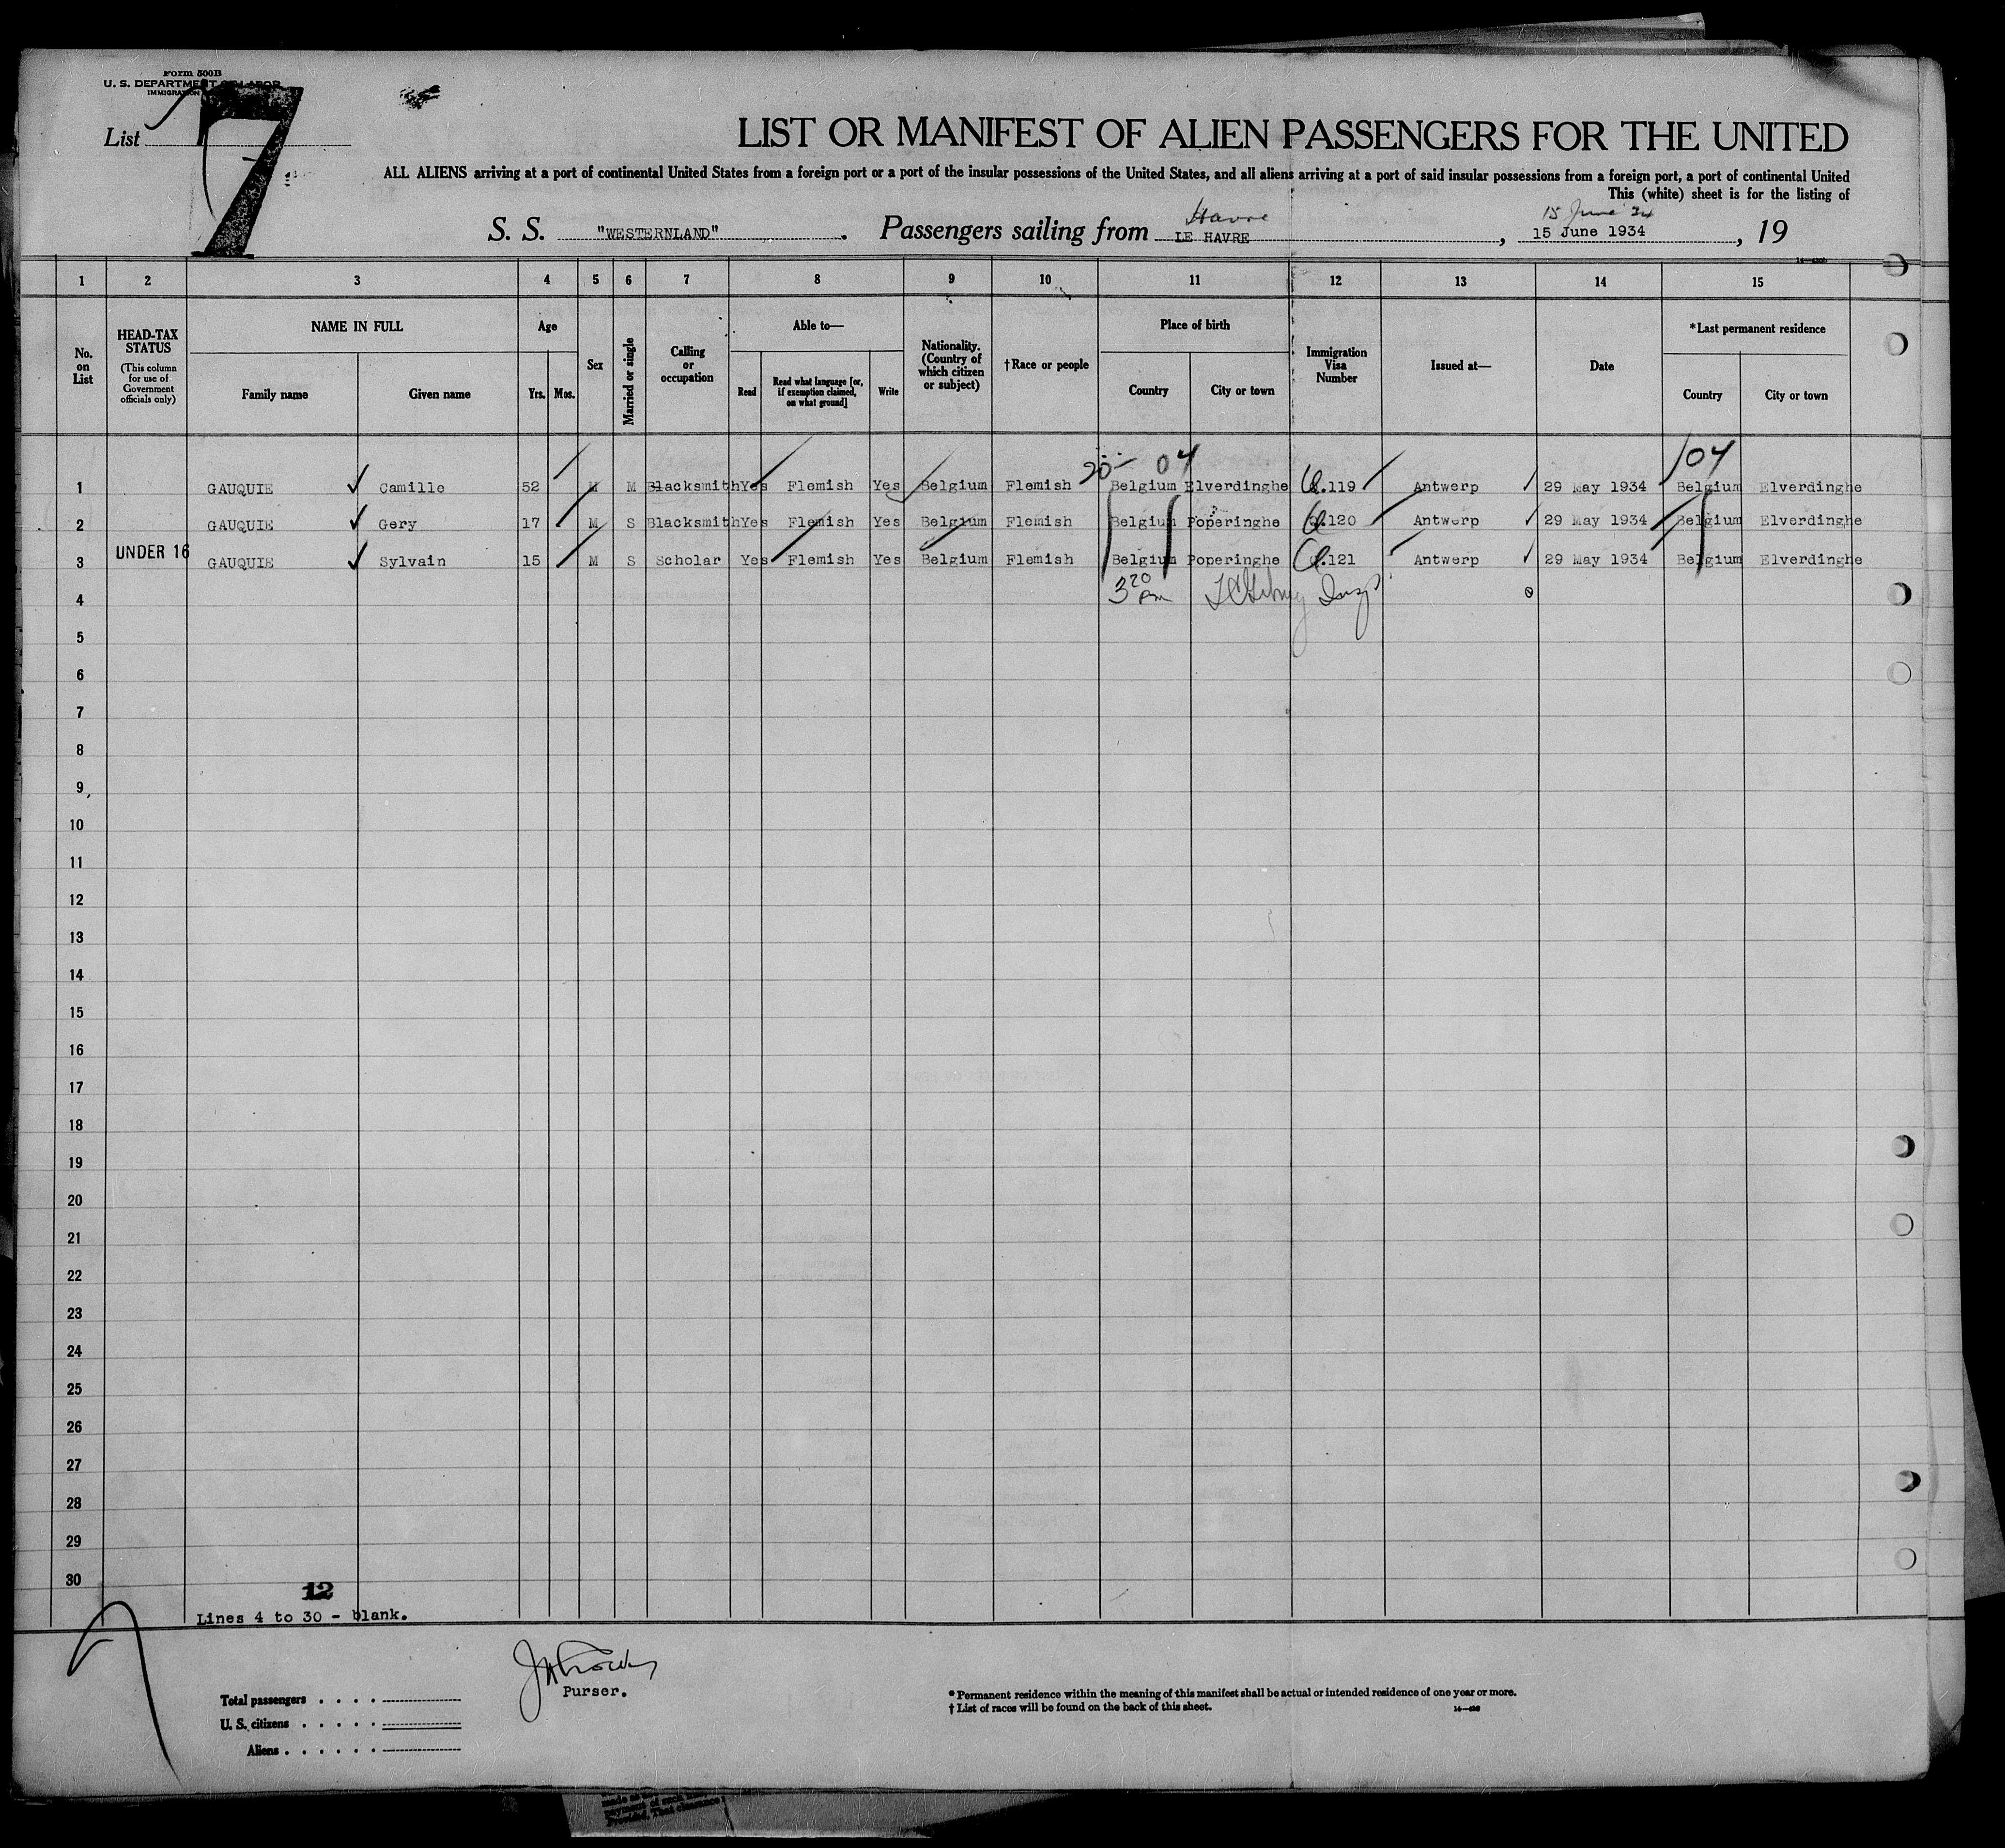 Form 500B
U. S. DEPARTMENT OF LABOR
IMMIGRATION
List 7
LIST OR MANIFEST OF ALIEN PASSENGERS FOR THE UNITED
ALL ALIENS arriving at a port of continental United States from a foreign port or a port of the insular possessions of the United States, and all aliens arriving at a port of said insular possessions from a foreign port, a port of continental United
This (white) sheet is for the listing of
Havre 15 June 34
S. S. "WESTERNLAND". Passengers sailing from LE HAVRE, 15 June 1934, 19
1 2 3 4 5 6 7 8 9 10 11 12 13 14 15
No. on List
HEAD-TAX STATUS
(This column for use of Government officials only)
NAME IN FULL
Family name Given name
Age
Yrs. Mos.
Sex
Married or single
Calling or occupation
Able to—
Read
Read what language [or, if exemption claimed, on what ground]
Write
Nationality. (Country of which citizen or subject)
†Race or people
Place of birth
Country City or town
Immigration Visa Number
Issued at—
Date
*Last permanent residence
Country City or town
20- 04 104
1 GAUQUIE Camille 52 M M Blacksmith Yes Flemish Yes Belgium Flemish Belgium Elverdinghe Q.119 Antwerp 29 May 1934 Belgium Elverdinghe
2 GAUQUIE Gery 17 M S Blacksmith Yes Flemish Yes Belgium Flemish Belgium Poperinghe Q.120 Antwerp 29 May 1934 Belgium Elverdinghe
3 UNDER 16 GAUQUIE Sylvain 15 M S Scholar Yes Flemish Yes Belgium Flemish Belgium Poperinghe Q.121 Antwerp 29 May 1934 Belgium Elverdinghe
4 3 20 pm Insp
5
6
7
8
9
10
11
12
13
14
15
16
17
18
19
20
21
22
23
24
25
26
27
28
29
30
12
Lines 4 to 30 - blank.
Purser.
Total passengers
U. S. citizens
Aliens
* Permanent residence within the meaning of this manifest shall be actual or intended residence of one year or more.
† List of races will be found on the back of this sheet.